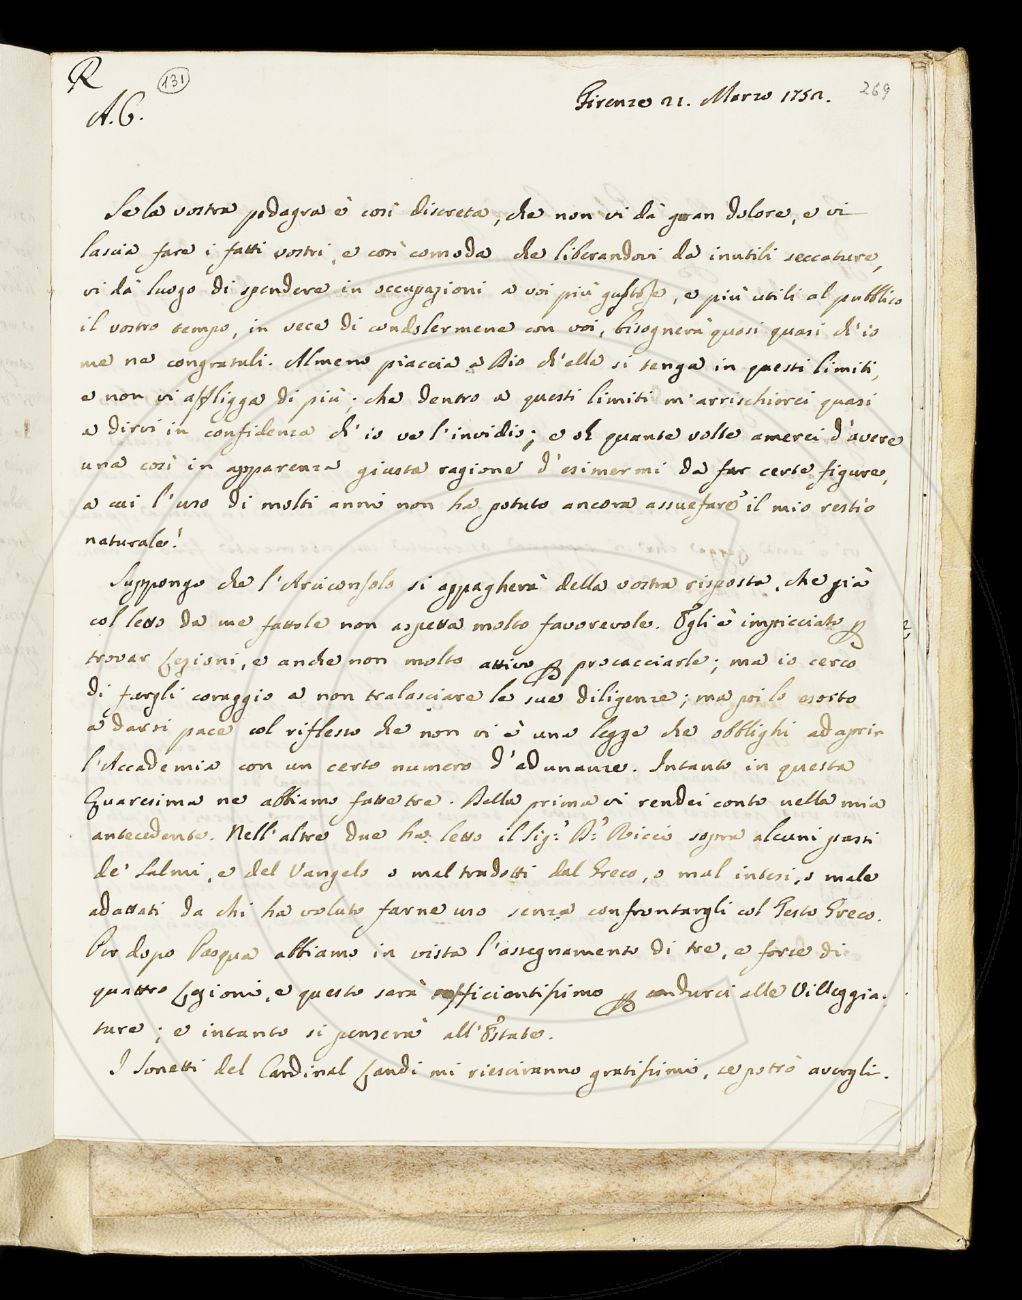 R
131
269
A. C.
Firenze 21. Marzo 1752.
Se la vostra podagra è così discreta, che non vi dà gran dolore, e vi
lascia fare i fatti vostri, e così comoda che liberandovi da inutili seccature,
vi dà luogo di spendere in occupazioni a voi più gustose, e più utili al pubblico
il vostro tempo, in vece di condolermene con voi, bisognerà quasi quasi ch'io
me ne congratuli. Almeno piaccia a Dio ch'ella si tenga in questi limiti,
e non vi affligga di più; che dentro a questi limiti m'arrischierei quasi
a dirvi in confidenza ch'io ve l'invidio; e oh quante volte amerei d'avere
una così in apparenza giusta ragione d'esimermi da far certe figure,
a cui l'uso di molti anni non ha potuto ancora assuefare il mio restio
naturale!
Suppongo che l'Arciconsolo si appagherà della vostra risposta, che già
col letto da me fattole non aspetta molto favorevole. Egli è impicciato p
trovar Lezioni, e anche non molto attivo p procacciarle; ma io cerco
di fargli coraggio a non tralasciare le sue diligenze; ma poi lo esorto
a darsi pace col riflesso che non vi è una legge che obblighi ad aprir
l'Accademia con un certo numero d'adunanze. Intanto in questa
Quaresima ne abbiamo fatte tre. Della prima vi rendei conto nella mia
antecedente. Nell'altre due ha letto il Sig.r D.r Ricci sopra alcuni passi
de' Salmi, e del Vangelo o mal tradotti dal Greco, o mal intesi, o male
adattati da chi ha voluto farne uso senza confrontargli col Testo Greco.
Per dopo Pasqua abbiamo in vista l'assegnamento di tre, e forse di
quattro Lezioni, e questo sarà sufficientissimo p condurci alle Villeggia-
ture; e intanto si penserà all'Estate.
I Sonetti del Cardinal Landi mi riesciranno gratissimi, se potrò avergli.